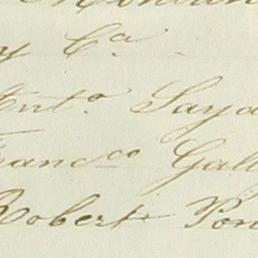 y Cª
Antº Saya
Francco Gall
Robert Pon